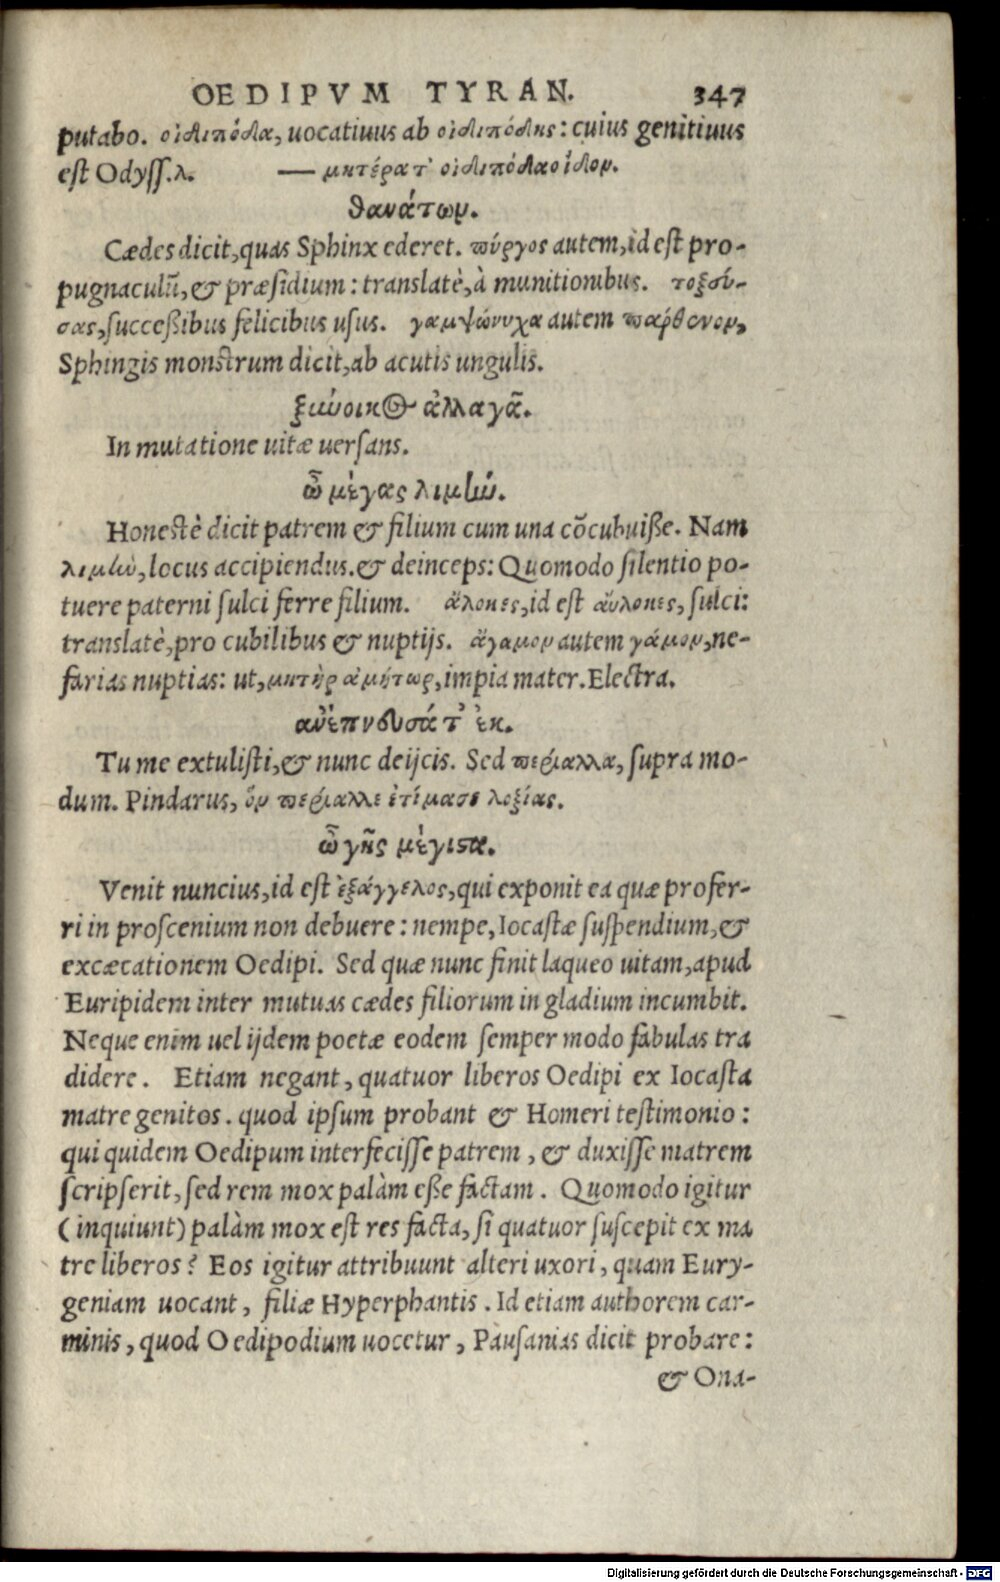 OEDIPVM TYRAN. 347
putabo. οἰδιπόδα, uocatiuus ab οἰδιπόδης: cuius genitiuus
est Odyss.λ. — μητέρα τ' οἰδιπόδαο ἴδον.
θανάτων.
Cædes dicit, quas Sphinx ederet. πύργος autem, id est pro-
pugnaculũ, & præsidium: translatè, à munitionibus. τοξεύ-
σας, successibus felicibus usus. γαμψώνυχα autem παρθένον,
Sphingis monstrum dicit, ab acutis ungulis.
ξιώοικος ἀλλαγᾶ.
In mutatione uitæ uersans.
ὦ μέγας λιμὼ.
Honestè dicit patrem & filium cum una cõcubuisse. Nam
λιμὼ, locus accipiendus. & deinceps: Quomodo silentio po-
tuere paterni sulci ferre filium. ἄλοκες, id est αὔλοκες, sulci:
translatè, pro cubilibus & nuptijs. ἄγαμον autem γάμον, ne-
farias nuptias: ut, μητὴρ ἀμήτωρ, impia mater. Electra.
ἀνέπνευσά τ' ἐκ.
Tu me extulisti, & nunc deijcis. Sed περίαλλα, supra mo-
dum. Pindarus, ὃν περίαλλε ἐτίμασε λοξίας.
ὦ γῆς μέγιστα.
Venit nuncius, id est ἐξάγγελος, qui exponit ea quæ profer-
ri in proscenium non debuere: nempe, Iocastæ suspendium, &
excæcationem Oedipi. Sed quæ nunc finit laqueo uitam, apud
Euripidem inter mutuas cædes filiorum in gladium incumbit.
Neque enim uel ijdem poetæ eodem semper modo fabulas tra
didere. Etiam negant, quatuor liberos Oedipi ex Iocasta
matre genitos. quod ipsum probant & Homeri testimonio:
qui quidem Oedipum interfecisse patrem, & duxisse matrem
scripserit, sed rem mox palàm esse factam. Quomodo igitur
(inquiunt) palàm mox est res facta, si quatuor suscepit ex ma
tre liberos? Eos igitur attribuunt alteri uxori, quam Eury-
geniam uocant, filiæ Hyperphantis. Id etiam authorem car-
minis, quod Oedipodium uocetur, Pausanias dicit probare:
& Ona-
Digitalisierung gefördert durch die Deutsche Forschungsgemeinschaft - DFG